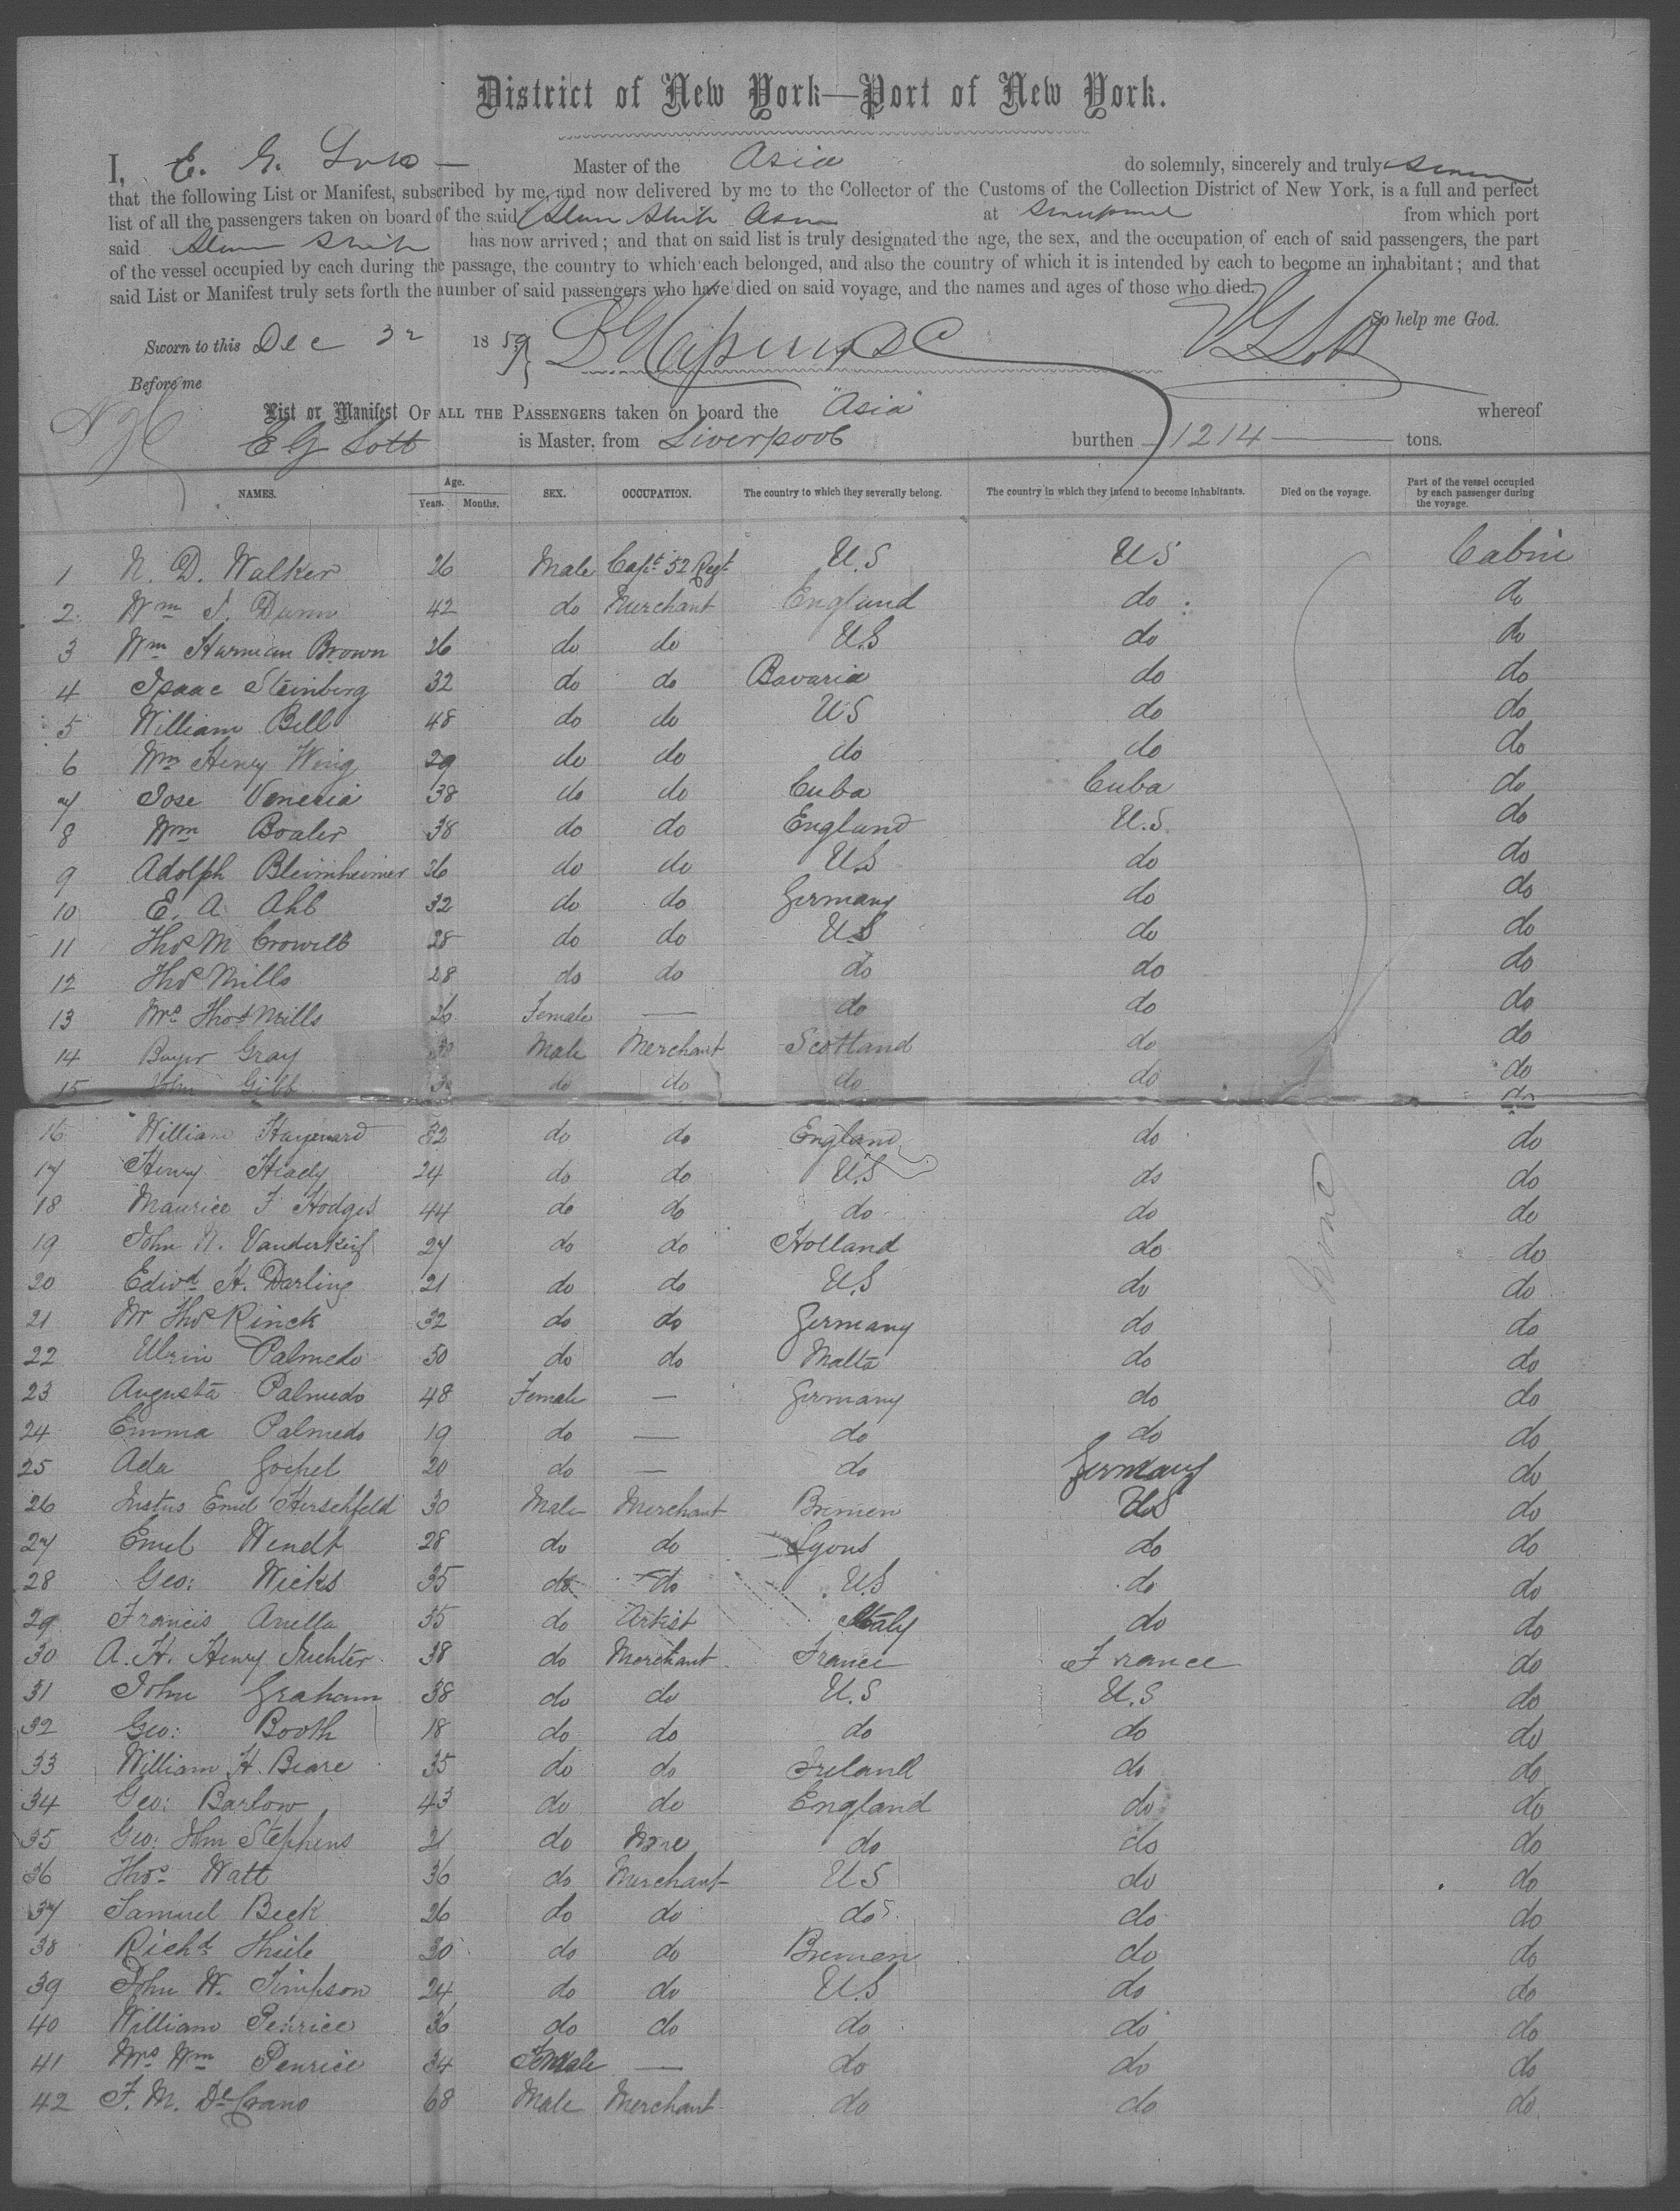 District of New York—Port of New York.
I, E. G. Lott — Master of the Asia do solemnly, sincerely and truly swear
that the following List or Manifest, subscribed by me, and now delivered by me to the Collector of the Customs of the Collection District of New York, is a full and perfect
list of all the passengers taken on board of the said Steam Ship Asia at Liverpool from which port
said Steam Ship has now arrived; and that on said list is truly designated the age, the sex, and the occupation of each of said passengers, the part
of the vessel occupied by each during the passage, the country to which each belonged, and also the country of which it is intended by each to become an inhabitant; and that
said List or Manifest truly sets forth the number of said passengers who have died on said voyage, and the names and ages of those who died.
So help me God.
Sworn to this Dec 1859 E G Lott
Before me
List or Manifest OF ALL THE PASSENGERS taken on board the "Asia" whereof
E G Lott is Master, from Liverpool burthen 1214 tons.
NAMES. Age. Years. Months. SEX. OCCUPATION. The country to which they severally belong. The country in which they intend to become inhabitants. Died on the voyage. Part of the vessel occupied by each passenger during the voyage.
1 N. D. Walker 26 Male Capt 52 Regt U.S US Cabin
2 Wm J. Dunn 42 do Merchant England do do
3 Wm Harman Brown 26 do do U.S do do
4 Isaac Steinberg 32 do do Bavaria do do
5 William Bell 48 do do US do do
6 Wm Henry Wing 29 do do do do do
7 Jose Venecia 38 do do Cuba Cuba do
8 Wm Boaler 38 do do England U.S. do
9 Adolph Bleimheimer 36 do do US do do
10 E. A. Ahl 32 do do Germany do do
11 Thos M Crowell 28 do do US do do
12 Thos Mills 28 do do do do do
13 Mrs Thos Mills 26 Female — do do do
14 Gray 30 Male Merchant Scotland do do
15 John Gibb 30 do do do do do
do
16 William Haymard 32 do do England do do
17 Henry Heady 24 do do U.S do do
18 Maurice F Hodges 44 do do do do do
19 John N. Vanderkeif 27 do do Holland do do
20 Edwd H. Darling 21 do do U.S do — None — do
21 Mr Thos Rinck 32 do do Germany do do
22 Palmedo 50 do do Malta do do
23 Augusta Palmedo 48 Female — Germany do do
24 Emma Palmedo 19 do — do do do
25 Ada Goepel 20 do — do Germany do
26 Justus Emil Hirschfeld 30 Male Merchant Bremen US do
27 Emil Wendt 28 do do Lyons do do
28 Geo: Wicks 35 do do U.S do do
29 Francis Anella 35 do Artist Italy do do
30 A. H. Henry 38 do Merchant France France do
31 John Graham 38 do do U.S U.S do
32 Geo: Booth 18 do do do do do
33 William H. Beare 35 do do Ireland do do
34 Geo: Barlow 43 do do England do do
35 Geo: Jhn Stephens 21 do None do do do
36 Thos Watt 36 do Merchant US do do
37 Samuel Beck 26 do do do do do
38 Richd Thiele 30 do do Bremen do do
39 John W. Timpson 24 do do U.S do do
40 William Penrice 36 do do do do do
41 Mrs Wm Penrice 34 Female — do do do
42 F. M. De Crano 68 Male Merchant do do do